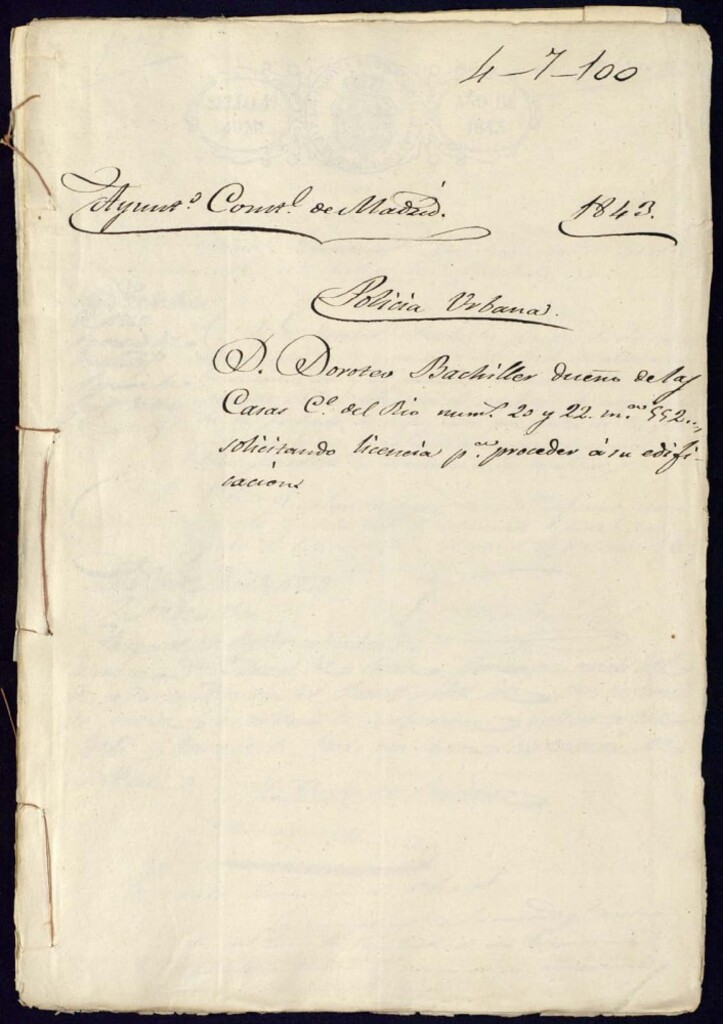 4-7-100
Ayunt.º Const.l de Madrid.
1843.
Policia Urbana.
D. Doroteo Bachiller dueño de las
Casas C.e del Rio num.s 20 y 22. m.na 552...,
solicitando licencia p.a proceder á su edifi-
cacion